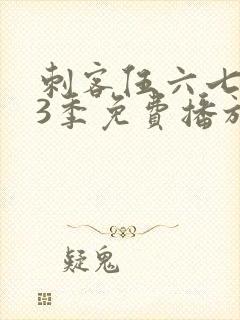 刺客伍六七
3季免費播放
疑鬼